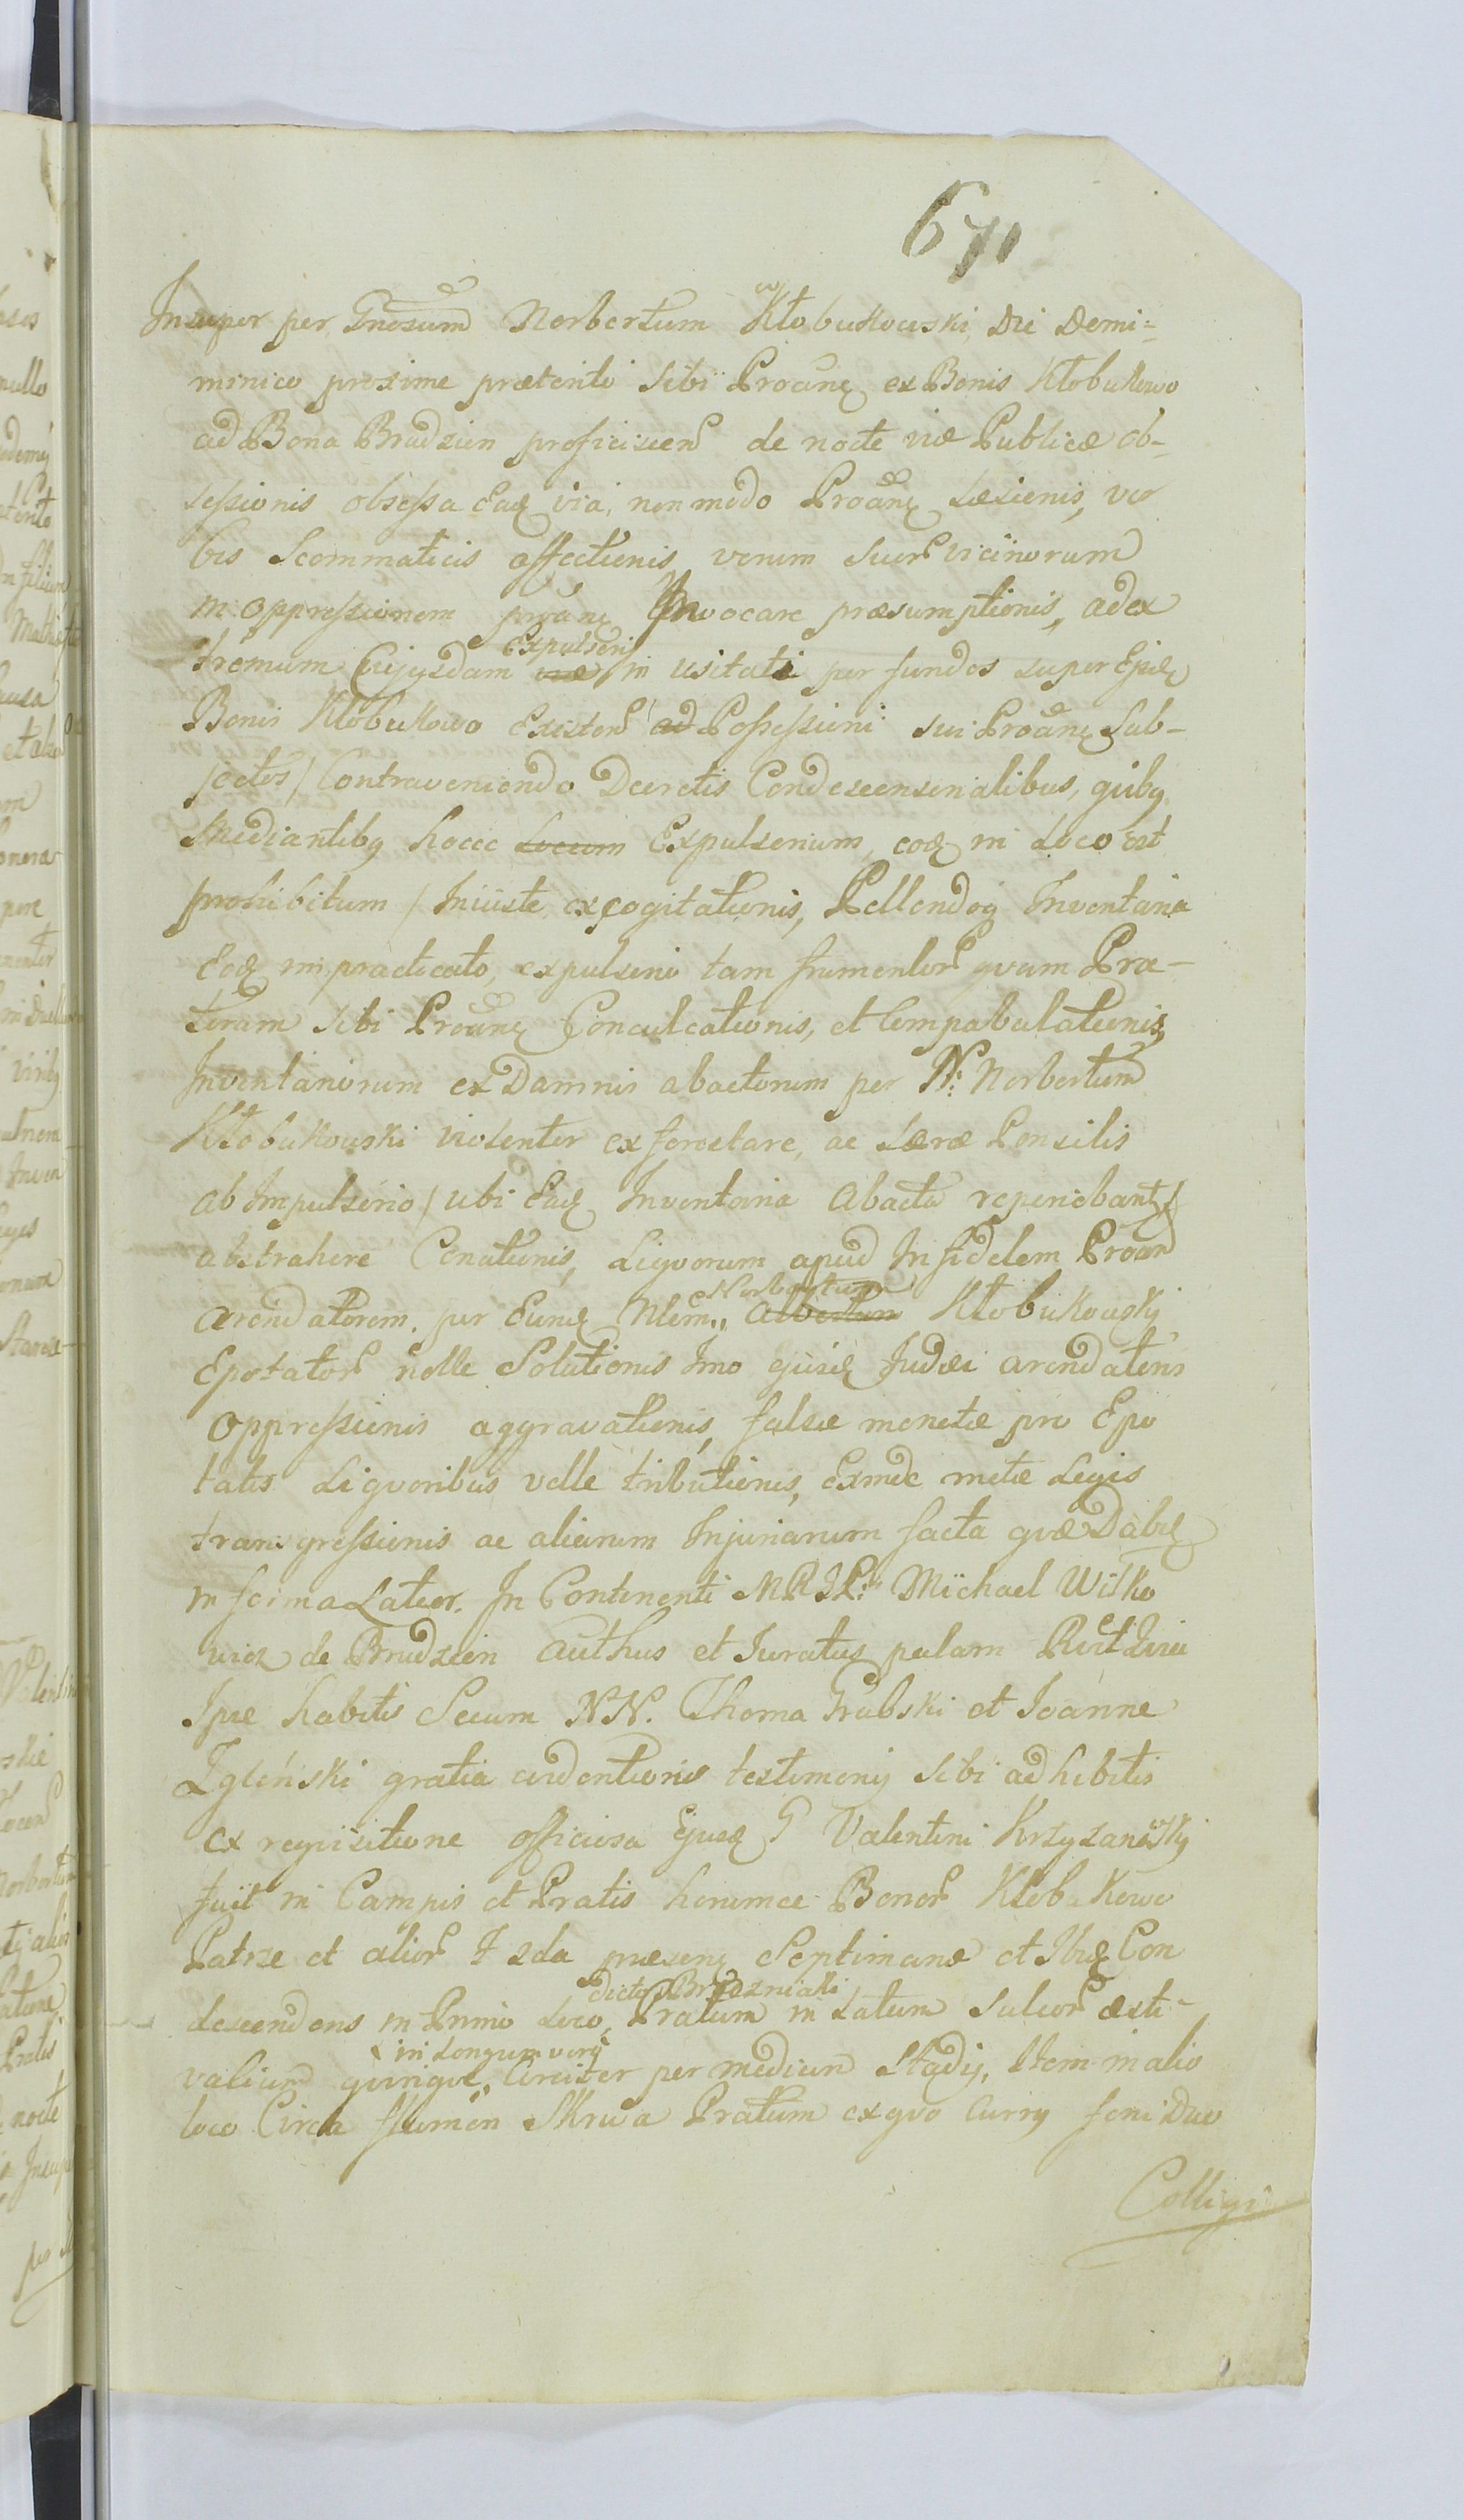 671
Insuper per Gnosum Norbertum Kłobukowski Die Domi=
minico proxime præterito sibi Proãnę ex Bonis Kłobukowo
ad Bona Brudzien proficiscen de nocte viæ Publicæ ob-
sessionis obsessa Eaq via, non modo Proãnę Læsionis, ver
bis Scommaticis affectionis verum suor vicinorum
in oppressionem proãnę Invocare præsumptionis, ad ex
tremum Cujusdam viæ Expulsorij in usitati per fundos super Ejsdę
Bonis Kłobukowo Existen ad Possessioni sui Proãnę Sub-
jectos / Contraveniendo Decretis Condescensionalibus, quibq
mediantibq hocce Locum Expulsorium, eoq in Loco est
prohibitum / Iniuste excogitationis, Pellendoq Inventaria
Eoq in practicato, expulsorio tam frumentor quam Pra-
torum sibi Proãnę Conculcationis, et Compabulationis,
Inventariorum ex Damnis abactorum per N: Norbertum
Kłobukowski violenter exforcetare, ac Seræ Pensilis
ab Impulsorio / ubi Eaq Inventaria Abacta reperiebantę /
abstrahere Conationis, Liquorum apud Infidelem Proãn
arendatorem, per Eunq Nlem,, Albertum Norbertum Kłobukowskj
Epotator nolle Solutionis Imo ejusq Judæi arendatoris
oppressionis aggravationis, falsæ monetæ pro Epo
tatis Liquoribus velle tributionis, Exinde metæ Legis
transgressionis ac aliarum Injuriarum facta quæ Dabię
in forma Latior. In Continenti MRSP: Michael Witko
wicz de Brudzien authus et Juratus palam
Ipse habitis Secum NN. Thoma Grabski et Joanne
Zgleński gratia evidentioris testimonij sibi adhibitis
ex requisitione officiosa Ejusq G Valentini Krzyzanoskj
fuit in Campis et Pratis horumce Bonor Kłobukowo
Patrze et alior præsenę Septimanæ et Ibiq Con
descendens in Primo Loco, dicto Brzezniaki Pratum in Latum Sulcor æsti-
valium quinque, in Longum verò Circiter per medium Stadij, Item in alio
loco Circa flumen Skrwa Pratum ex quo Currq foeni Duo
Colligi